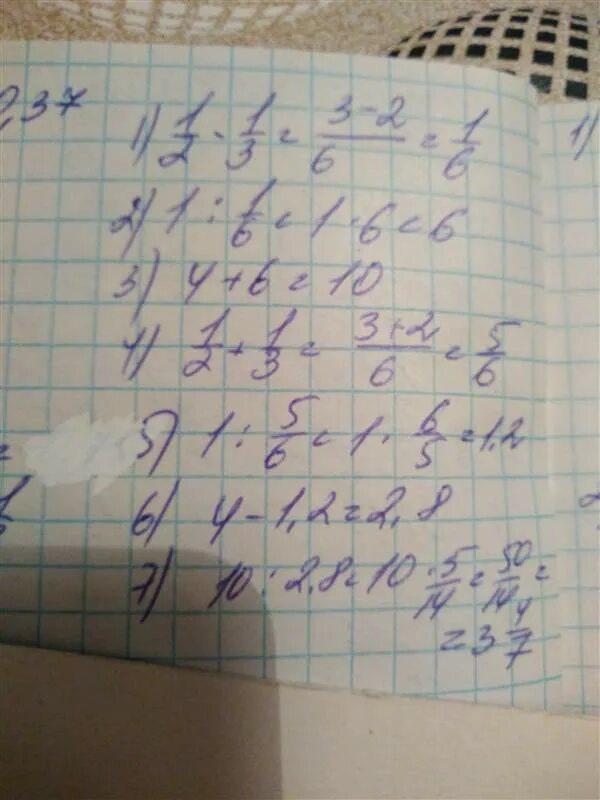 ,37
1) 1/2 - 1/3 = (3-2)/6 = 1/6
2) 1 : 1/6 = 1 · 6 = 6
3) 4 + 6 = 10
4) 1/2 + 1/3 = (3+2)/6 = 5/6
5) 1 : 5/6 = 1 · 6/5 = 1,2
6) 4 - 1,2 = 2,8
7) 10 : 2,8 = 10 · 5/14 = 50/14 =
= 3 4/7
1)